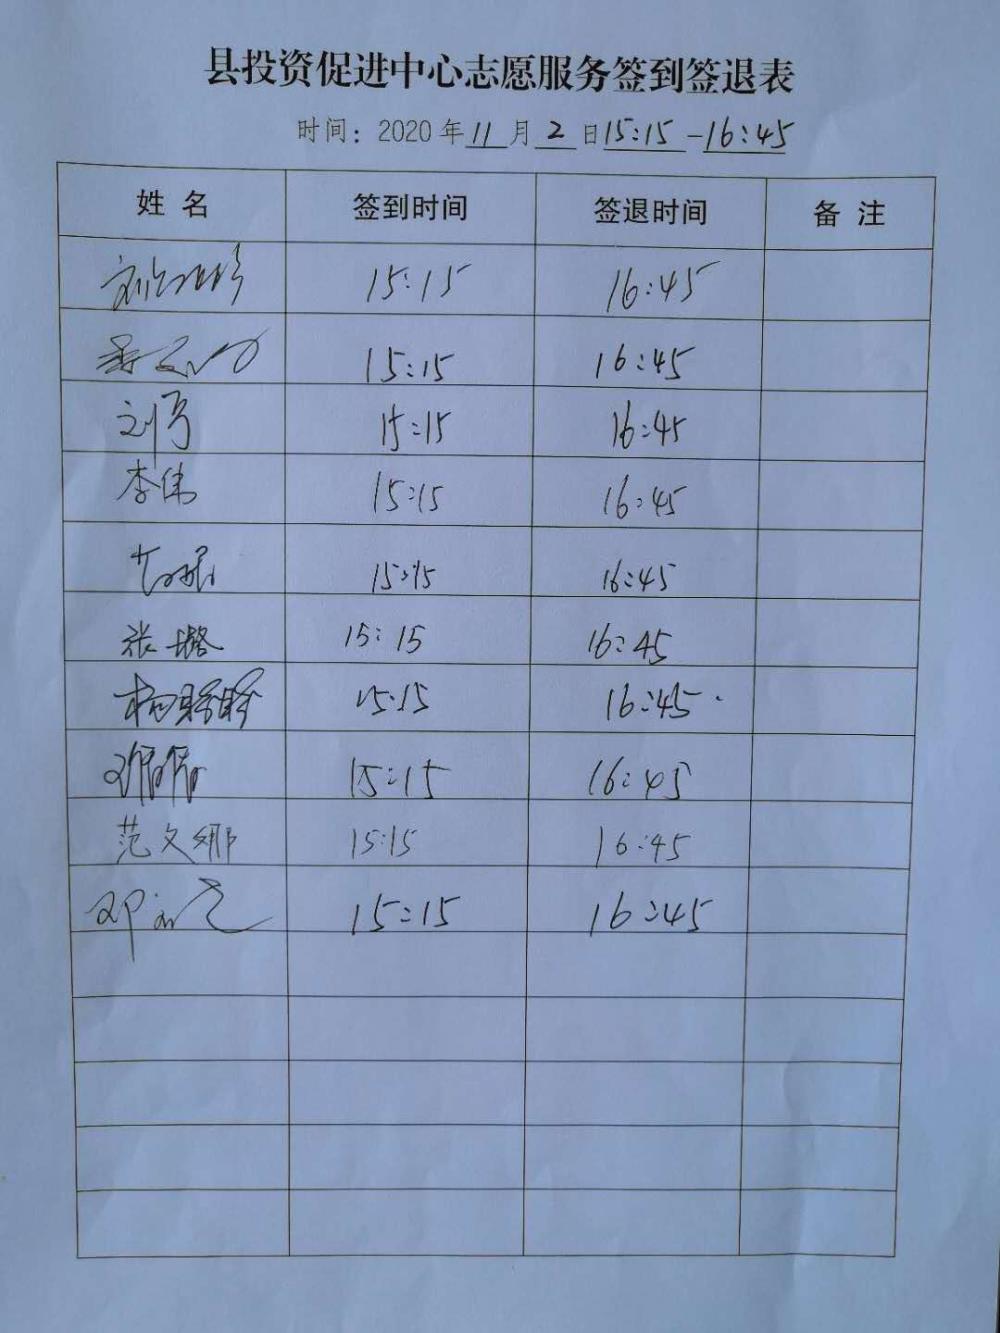 县投资促进中心志愿服务签到签退表
时间：2020年11月2日15:15-16:45
姓 名 签到时间 签退时间 备 注
15:15 16:45
15:15 16:45
15:15 16:45
李伟 15:15 16:45
15:15 16:45
张璐 15:15 16:45
15:15 16:45
15:15 16:45
范文娜 15:15 16:45
15:15 16:45